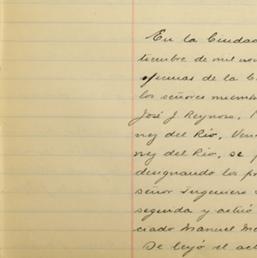 En la Ciudad
tiembre de mil nov
oficinas de la C
los señores miemb
José J. Reynoso,
nez del Río, Ven
nez del Río, se p
designando los pr
señor Ingeniero
segunda y actuó
ciado Manuel Me
Se leyó el act